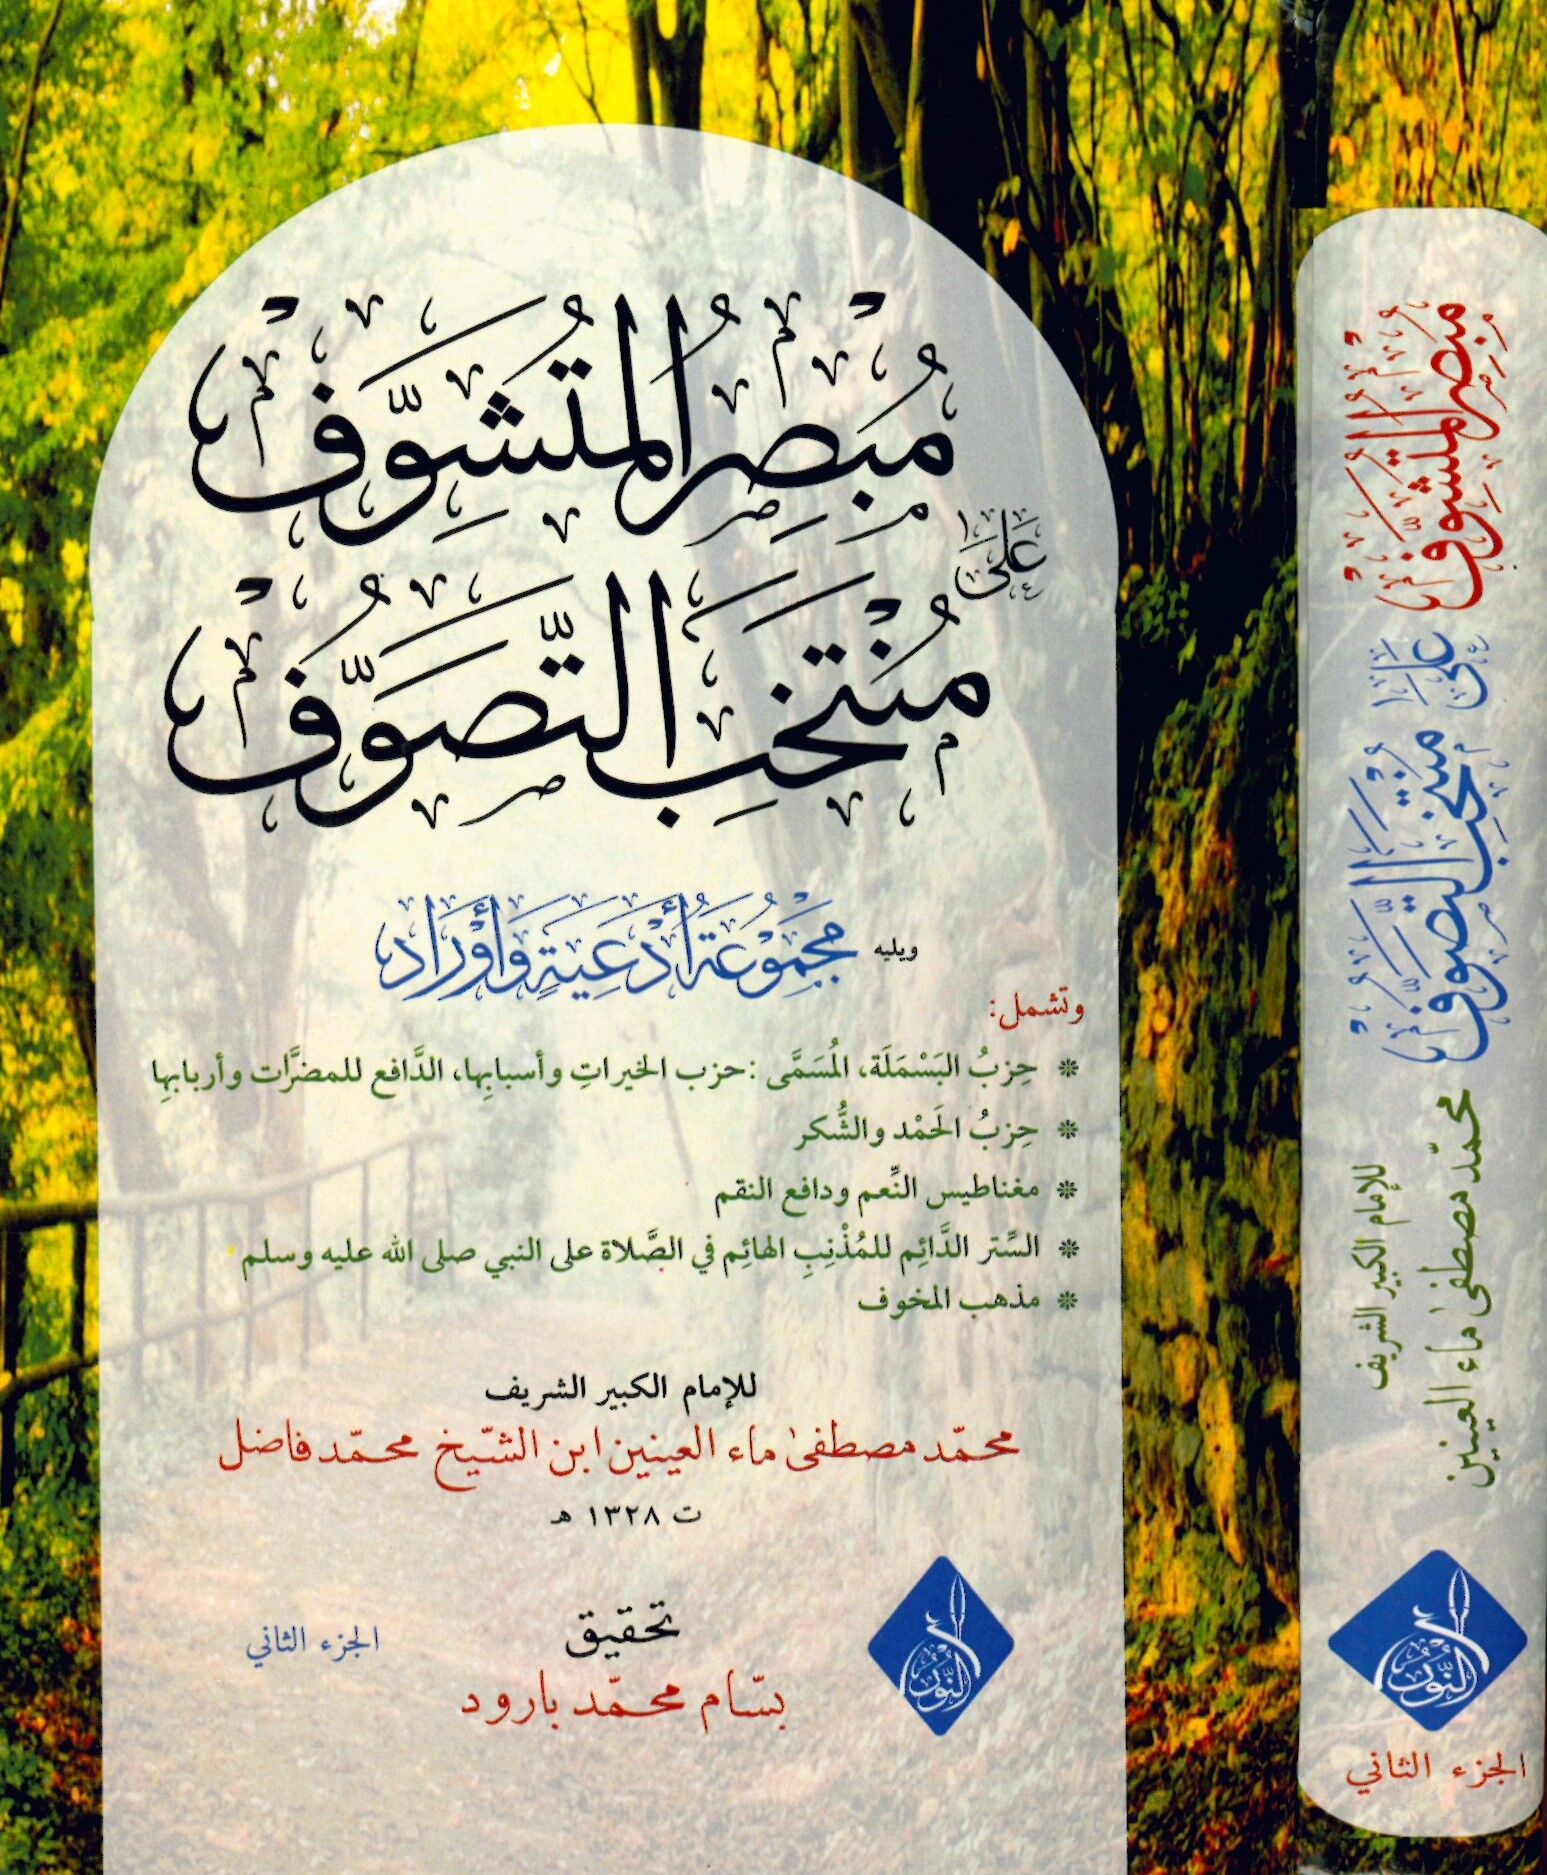 مُبْصِرُ المُتَشَوِّفْ
عَلَى
مُنْتَخَبِ التَّصَوُّفْ
ويليه مَجْمُوعَةُ أَدْعِيَةٍ وَأَوْرَادٍ
وتشمل:
❊ حِزبُ البَسْمَلَة، المُسَمَّى : حزب الخيراتِ وأسبابِها، الدَّافع للمضرَّات وأربابِها
❊ حِزبُ الحَمْد والشُّكر
❊ مغناطيس النِّعم ودافع النقم
❊ السِّتر الدَّائِم للمُذْنِبِ الهائِم في الصَّلاة على النبي صلى الله عليه وسلم
❊ مذهب المخوف
للإمام الكبير الشريف
محمّد مصطفىٰ ماء العينين ابن الشّيخ محمّد فاضل
ت ١٣٢٨ هـ
تحقيق
بسّام محمّد بارود
الجزء الثاني
النُّور
مُبْصِرُ المُتَشَوِّفْ
عَلَى
مُنْتَخَبِ التَّصَوُّفْ
للإمام الكبير الشريف
محمّد مصطفىٰ ماء العينين
النُّور
الجزء الثاني